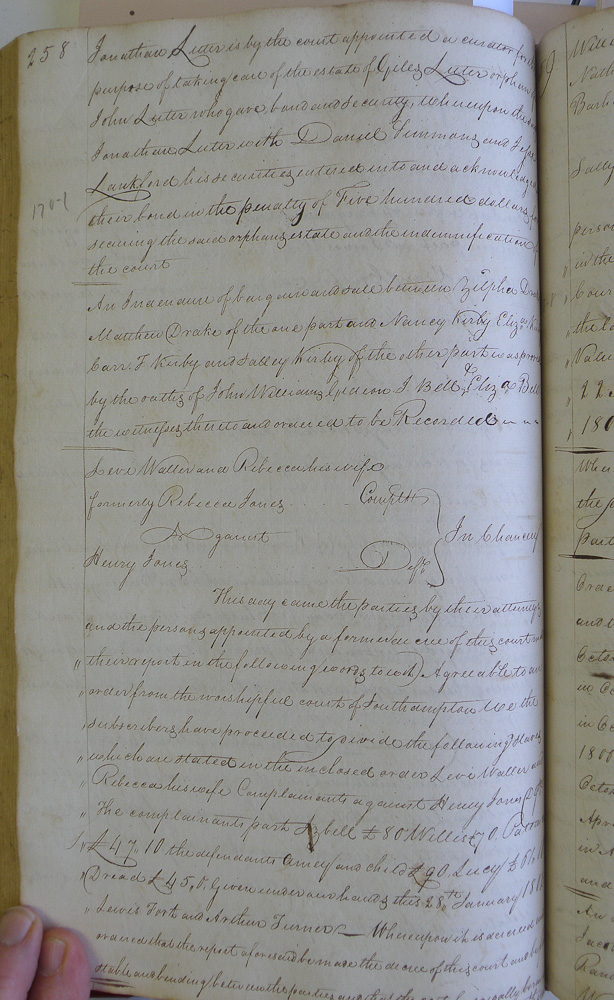 258
Jonathan Luter is by the court appointed a curator for
purpose of taking care of the estate of Giles Luter orphan of
John Luter who gave bond and security, Whereupon the said
Jonathan Luter with Daniel Simmons and Jesse
Lankford his securities entered into and acknowledged
their bond in the penalty of Five hundred dollars for
securing the said orphans estate and the indemnification of
the court
An Indenture of bargain and sale between Zilpha Drake
Matthew Drake of the one part and Nancy Kirby Eliza Kirby
Carr F Kirby and Salley Kirby of the other part was proved
by the oaths of John Williams Gideon J Bell & Eliza Bell
the witnesses thereto and ordered to be Recorded
Levi Waller and Rebecca his wife
formerly Rebecca Jones Complts
Against In Chancery
Henry Jones Deft
This day came the parties by their attornies
and the persons appointed by a former decree of this court made
" their report in the following words to wit) Agreeable to an
" order from the worshipful court of Southampton We the
" subscribers have proceeded to divide the following slaves
" which are stated in the inclosed order Levi Waller and
" Rebecca his wife Complainants against Henry Jones
" The complainants part Isbell £80 Willis £70.
" £47,10 the defendants Amey and child £90. Lucy
" Dread £45,0. Given under our hands this 28th January
" Lewis Fort and Arthur Turner — Whereupon it is decreed and
ordered that the report aforesaid be made the decree of this court and be
stable and binding between the parties and that the